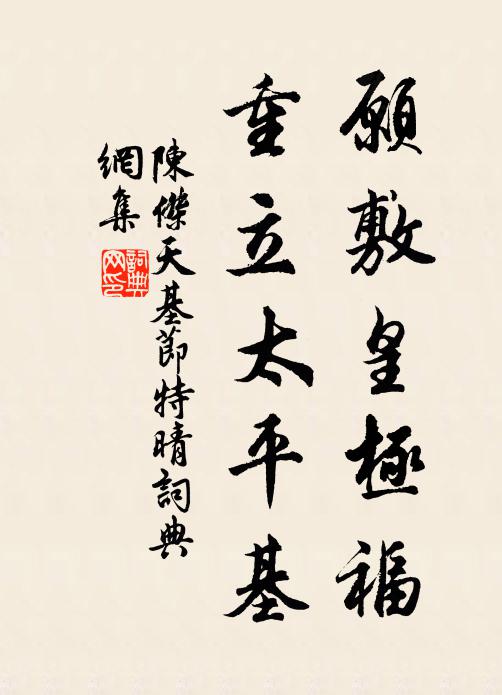 願敷皇極福
重立太平基
陳傑天基節特晴詞典
網集
詞典
网印